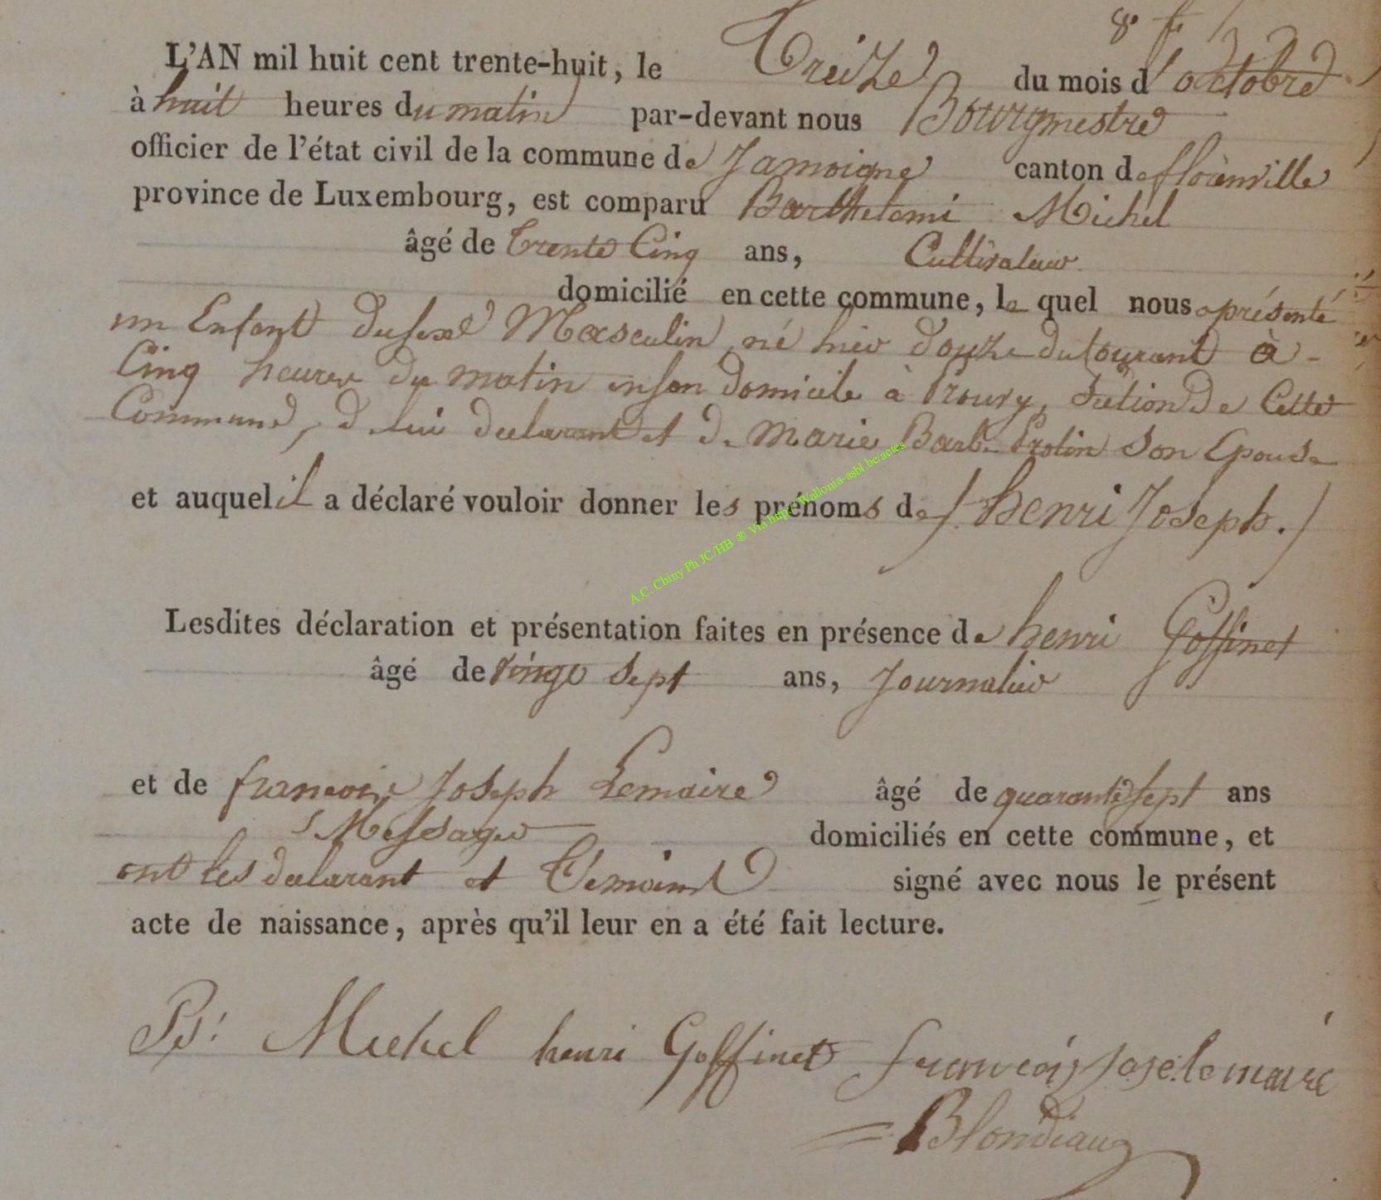 L'AN mil huit cent trente-huit, le Treize du mois d'octobre
à huit heures du matin par-devant nous Bourgmestre
officier de l'état civil de la commune de Jamoigne canton de florenville
province de Luxembourg, est comparu Barthelemi Michel
âgé de trente Cinq ans, Cultivateur
domicilié en cette commune, le quel nous a présenté
un Enfant du sexe Masculin né hier douze du Courant à
Cinq heures du matin en son domicile à Prouvy, Section de Cette
Commune, de lui declarant et de Marie Barbe son Epouse
et auquel il a déclaré vouloir donner les prénoms de /henri Joseph./
Lesdites déclaration et présentation faites en présence de henri Goffinet
âgé de vingt sept ans, Journalier
et de francois Joseph Lemaire âgé de quarante sept ans
Messager domiciliés en cette commune, et
ont les declarant et Témoins signé avec nous le présent
acte de naissance, après qu'il leur en a été fait lecture.
Michel henri Goffinet francois Jose: lemaire
Blondiaux
A.C. Chiny Ph JC/HB ® Via